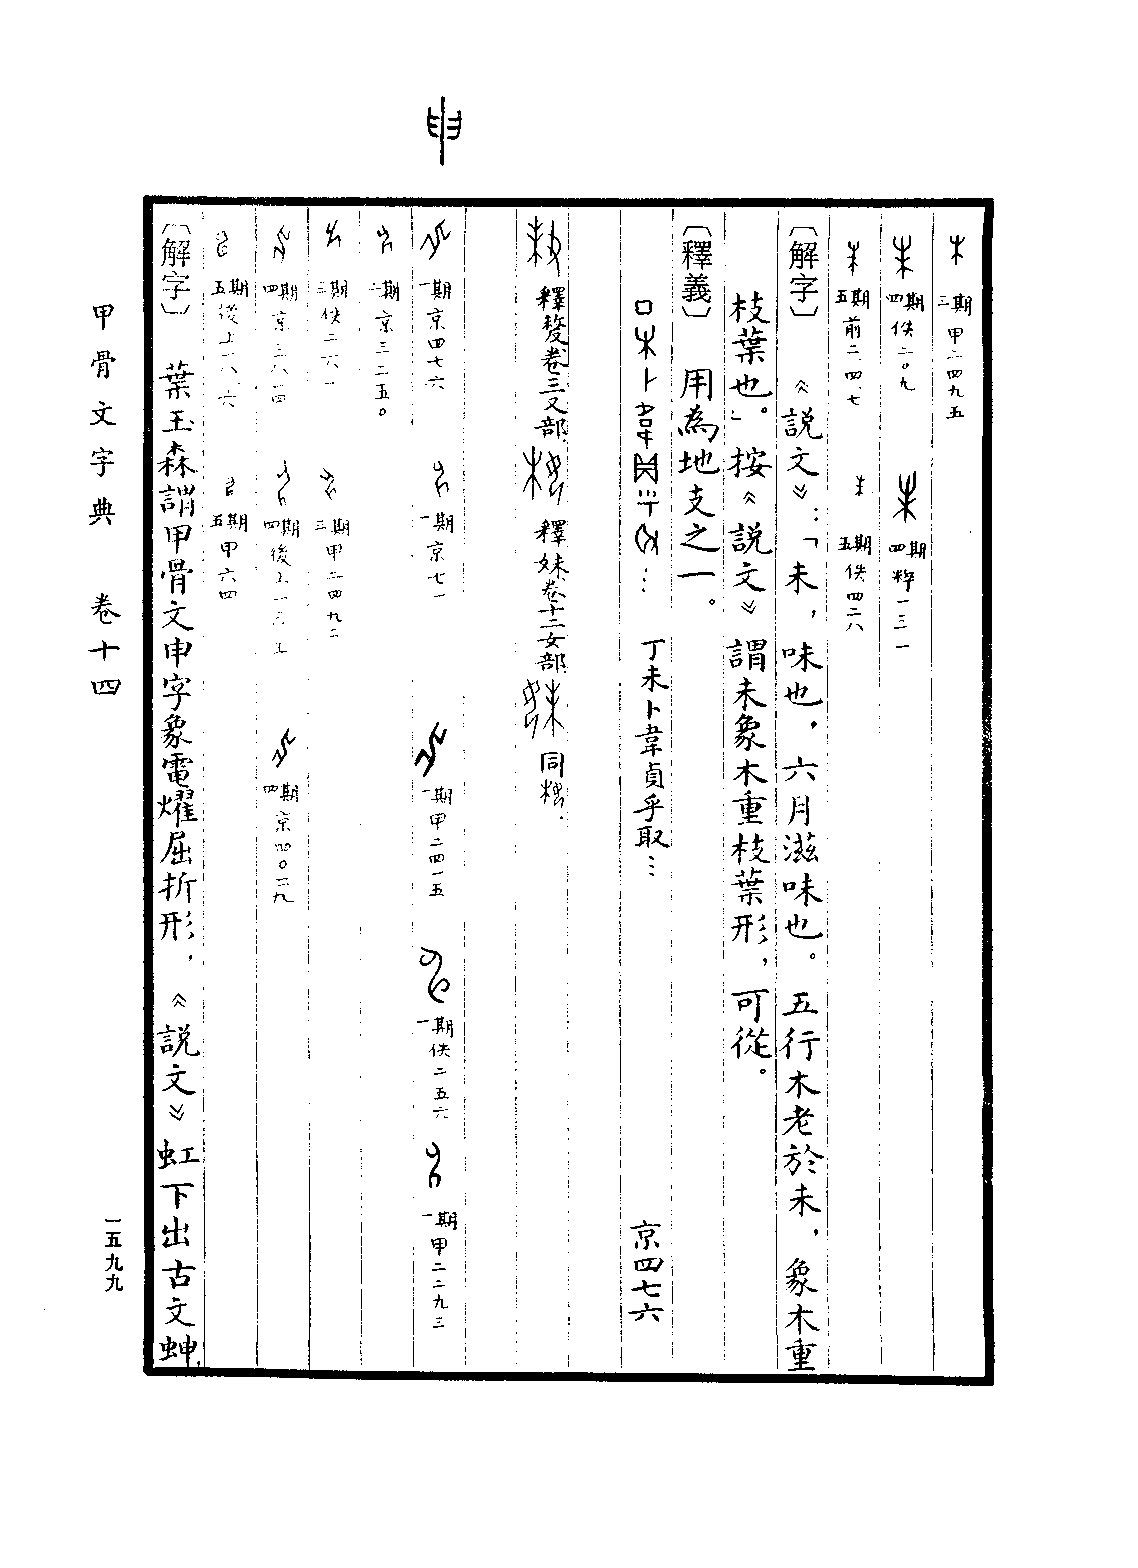 申
三期 甲二四九五
四期 佚二〇九 四期 粹一三一一
五期 前二·四·七 五期 佚四二八
〔解字〕 《説文》：「未，味也，六月滋味也。五行木老於未，象木重
枝葉也。」按《説文》謂未象木重枝葉形，可從。
〔釋義〕 用為地支之一。
丁未卜韋貞乎取… 京四七六
釋𠩺卷三又部， 釋妹卷十二女部， 同
一期 京四七六 一期 京七一 一期 甲二四一五 一期 佚二五六 一期 甲二二九三
二期 京三二五〇
三期 佚二六一 三期 甲二四九二
四期 四期 四期 京四〇二九
五期 五期 甲六四
〔解字〕 葉玉森謂甲骨文申字象電燿屈折形，《説文》虹下出古文𧌫，
甲骨文字典 卷十四
一五九九